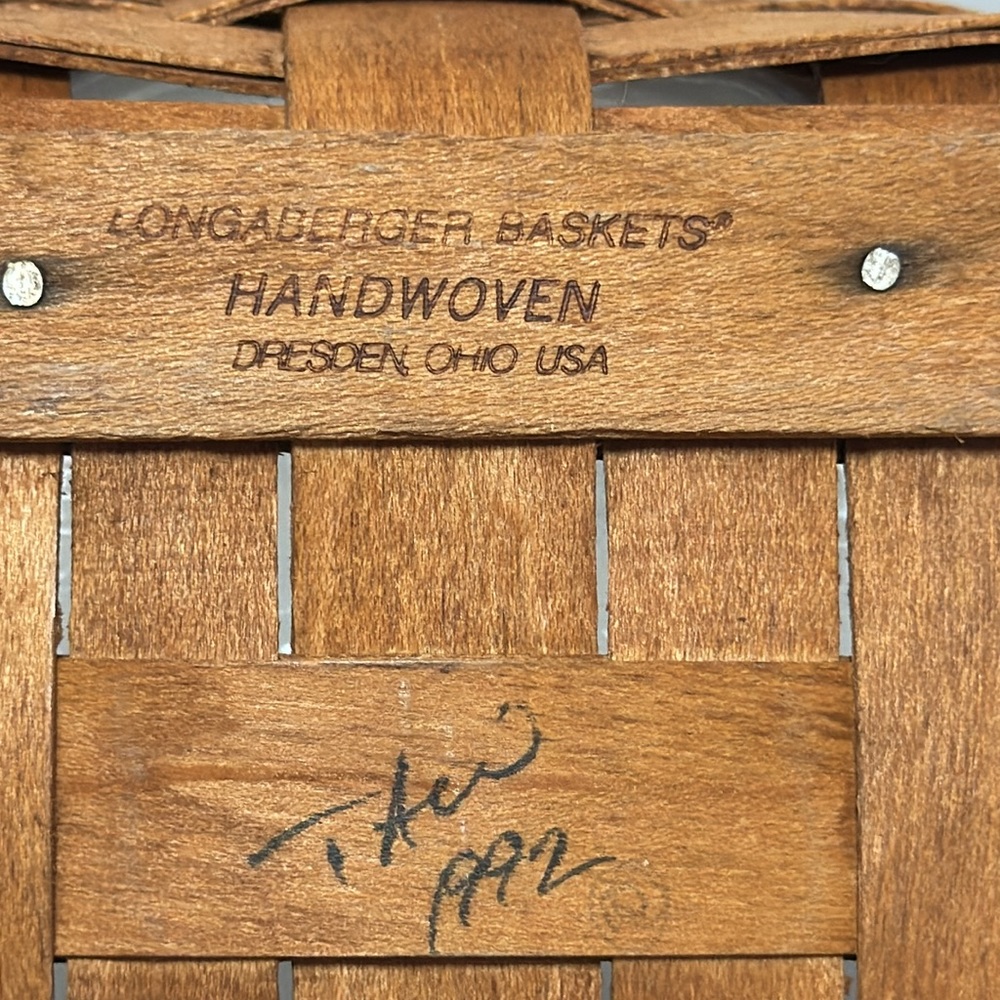 LONGABERGER BASKETS®
HANDWOVEN
DRESDEN, OHIO USA
1992